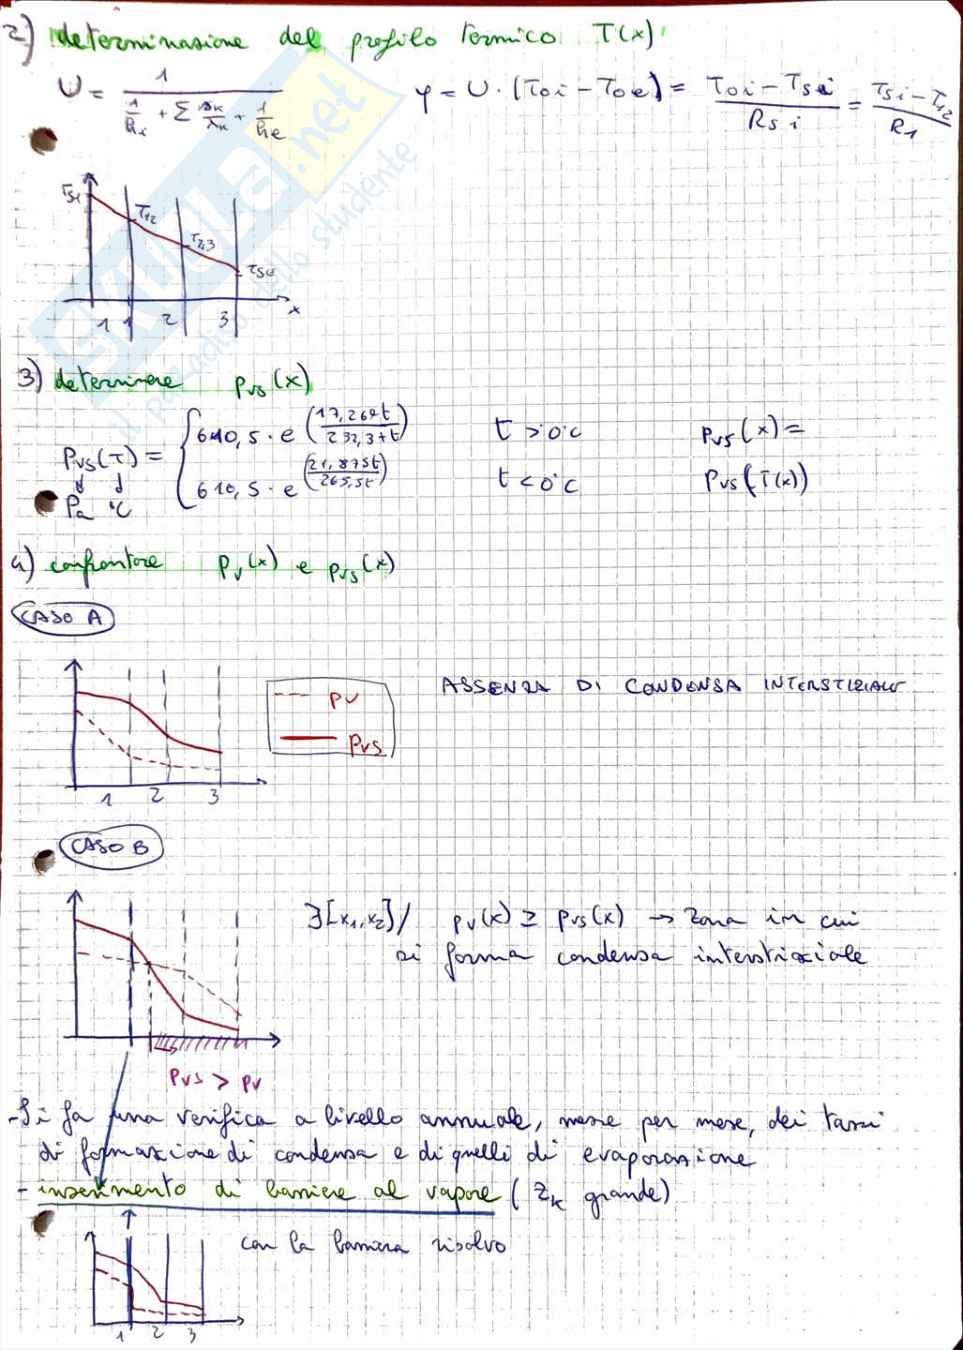 2) determinazione del profilo termico T(x)
U = 1 / (1/hi + Σ sk/λk + 1/he)    φ = U · (Toi - Toe) = (Toi - Tsi)/Rsi = (Tsi - T12)/R1
Tsi
T12
T23
Tse
x
1 2 3
3) determinare pvs(x)
pvs(T) = { 610,5 · e^(17,269t / 232,3+t)    t > 0°C    pvs(x) =
610,5 · e^(21,875t / 265,5t)    t < 0°C    pvs(T(x))
Pa °C
4) confrontare pv(x) e pvs(x)
CASO A
--- pv
— pvs
ASSENZA DI CONDENSA INTERSTIZIALE
1 2 3
CASO B
∃[x1,x2] / pv(x) ≥ pvs(x) → zona in cui
si forma condensa interstiziale
pvs > pv
- Si fa una verifica a livello annuale, mese per mese, dei tassi
di formazione di condensa e di quelli di evaporazione
- inserimento di barriere al vapore (zk grande)
con la barriera risolvo
1 2 3
SKUOLA.net
il paradiso dello studente